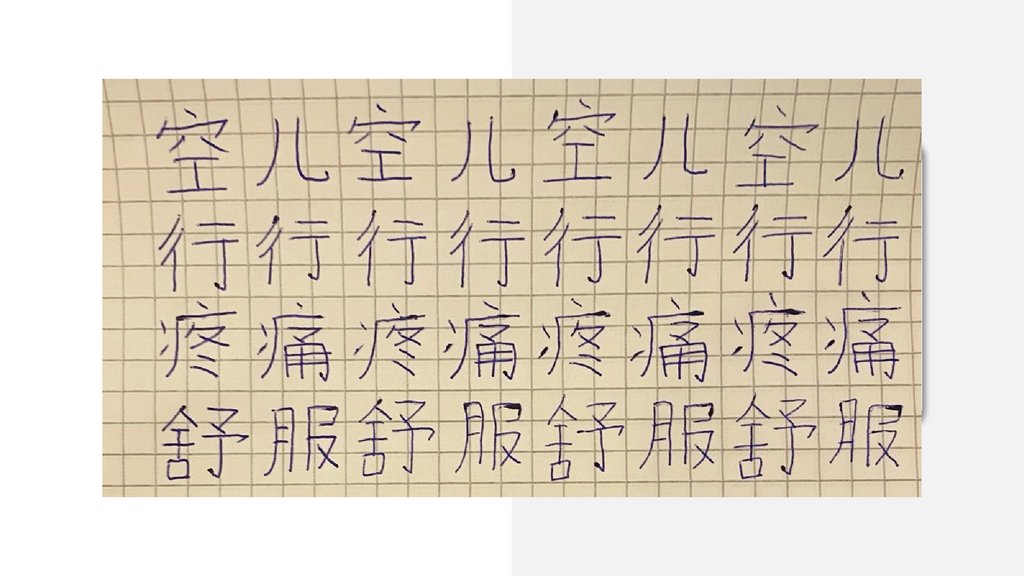 空儿空儿空儿空儿
行行行行行行行行
疼痛疼痛疼痛疼痛
舒服舒服舒服舒服